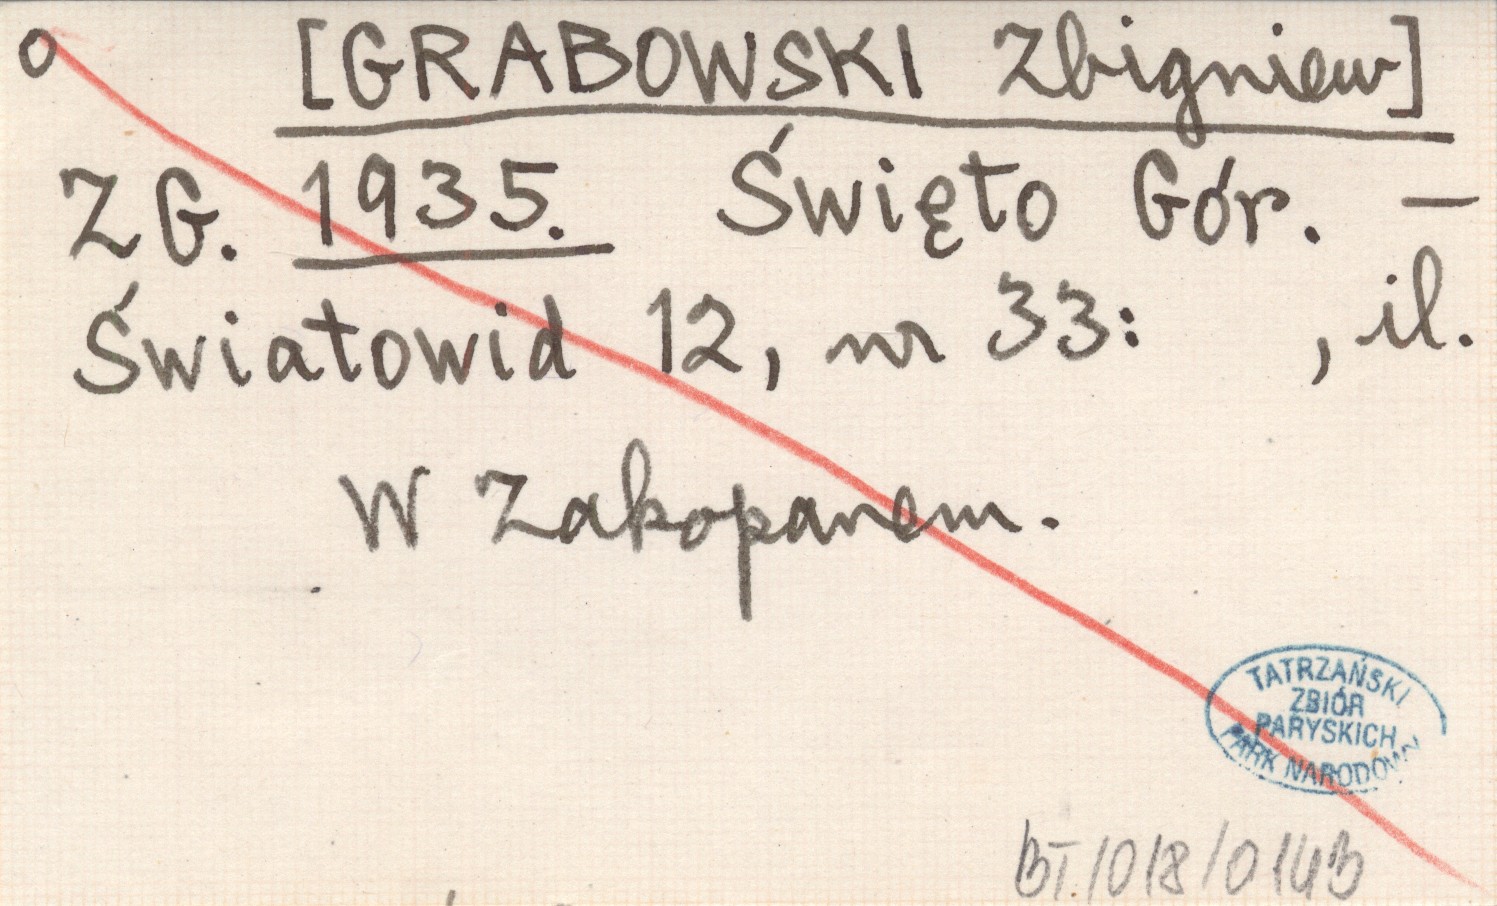 o [GRABOWSKI Zbigniew]
ZG. 1935. Święto Gór. —
Światowid 12, nr 33: , il.
W Zakopanem.
TATRZAŃSKI
ZBIÓR
PARYSKICH
PARK NARODOWY
BT/018/0143